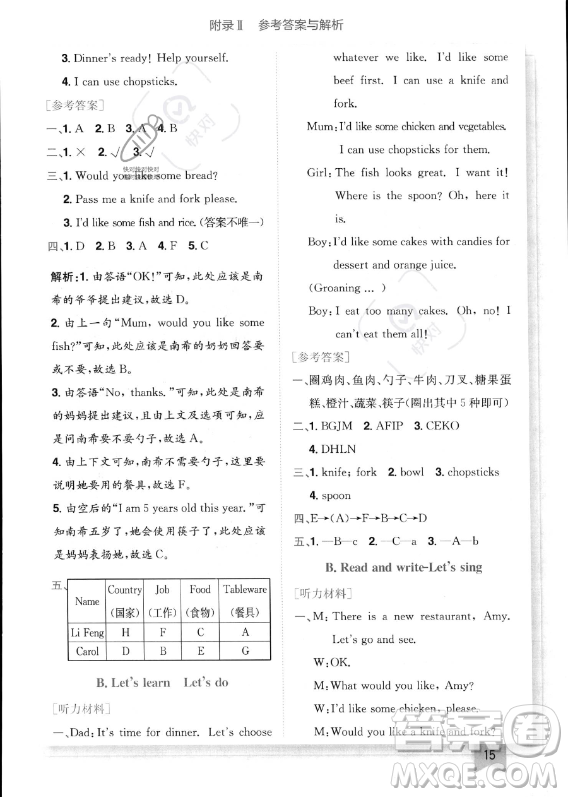 附录Ⅱ 参考答案与解析
3. Dinner's ready! Help yourself.
4. I can use chopsticks.
[参考答案]
一、1. A 2. B 3. A 4. B
二、1. × 2. √ 3. √
三、1. Would you like some bread?
2. Pass me a knife and fork please.
3. I'd like some fish and rice. (答案不唯一)
四、1. D 2. B 3. A 4. F 5. C
解析:1. 由答语“OK!”可知,此处应该是南
希的爷爷提出建议,故选 D。
2. 由上一句“Mum, would you like some
fish?”可知,此处应该是南希的奶奶回答要
或不要,故选 B。
3. 由答语“No, thanks.”可知,此处应该是南
希的妈妈提出建议,且由上文及选项可知,应
是问南希要不要勺子,故选 A。
4. 由上下文可知,南希不需要勺子,此处应该
说明她要用的餐具,故选 F。
5. 由空后的“I am 5 years old this year.”可知
南希五岁了,此处应该是她会用筷子了,或者
是妈妈表扬她,故选 C。
五、
Name Country (国家) Job (工作) Food (食物) Tableware (餐具)
Li Feng H F C A
Carol D B E G
B. Let's learn Let's do
[听力材料]
一、Dad: It's time for dinner. Let's choose
whatever we like. I'd like some
beef first. I can use a knife and
fork.
Mum: I'd like some chicken and vegetables.
I can use chopsticks for them.
Girl: The fish looks great. I want it!
Where is the spoon? Oh, here it
is.
Boy: I'd like some cakes with candies for
dessert and orange juice.
(Groaning ...)
Boy: I eat too many cakes. Oh, no! I
can't eat them all!
[参考答案]
一、圈鸡肉、鱼肉、勺子、牛肉、刀叉、糖果蛋
糕、橙汁、蔬菜、筷子(圈出其中 5 种即可)
二、1. BGJM 2. AFIP 3. CEKO
4. DHLN
三、1. knife; fork 2. bowl 3. chopsticks
4. spoon
四、E→(A)→F→C→B→D
五、1. —B—c 2. —C—b 3. —A—a
B. Read and write-Let's sing
[听力材料]
一、M: There is a new restaurant, Amy.
Let's go and see.
W: OK.
M: What would you like, Amy?
W: I'd like some chicken, please.
M: Would you like a knife and fork?
15
快对
答案圈
MXQE.COM